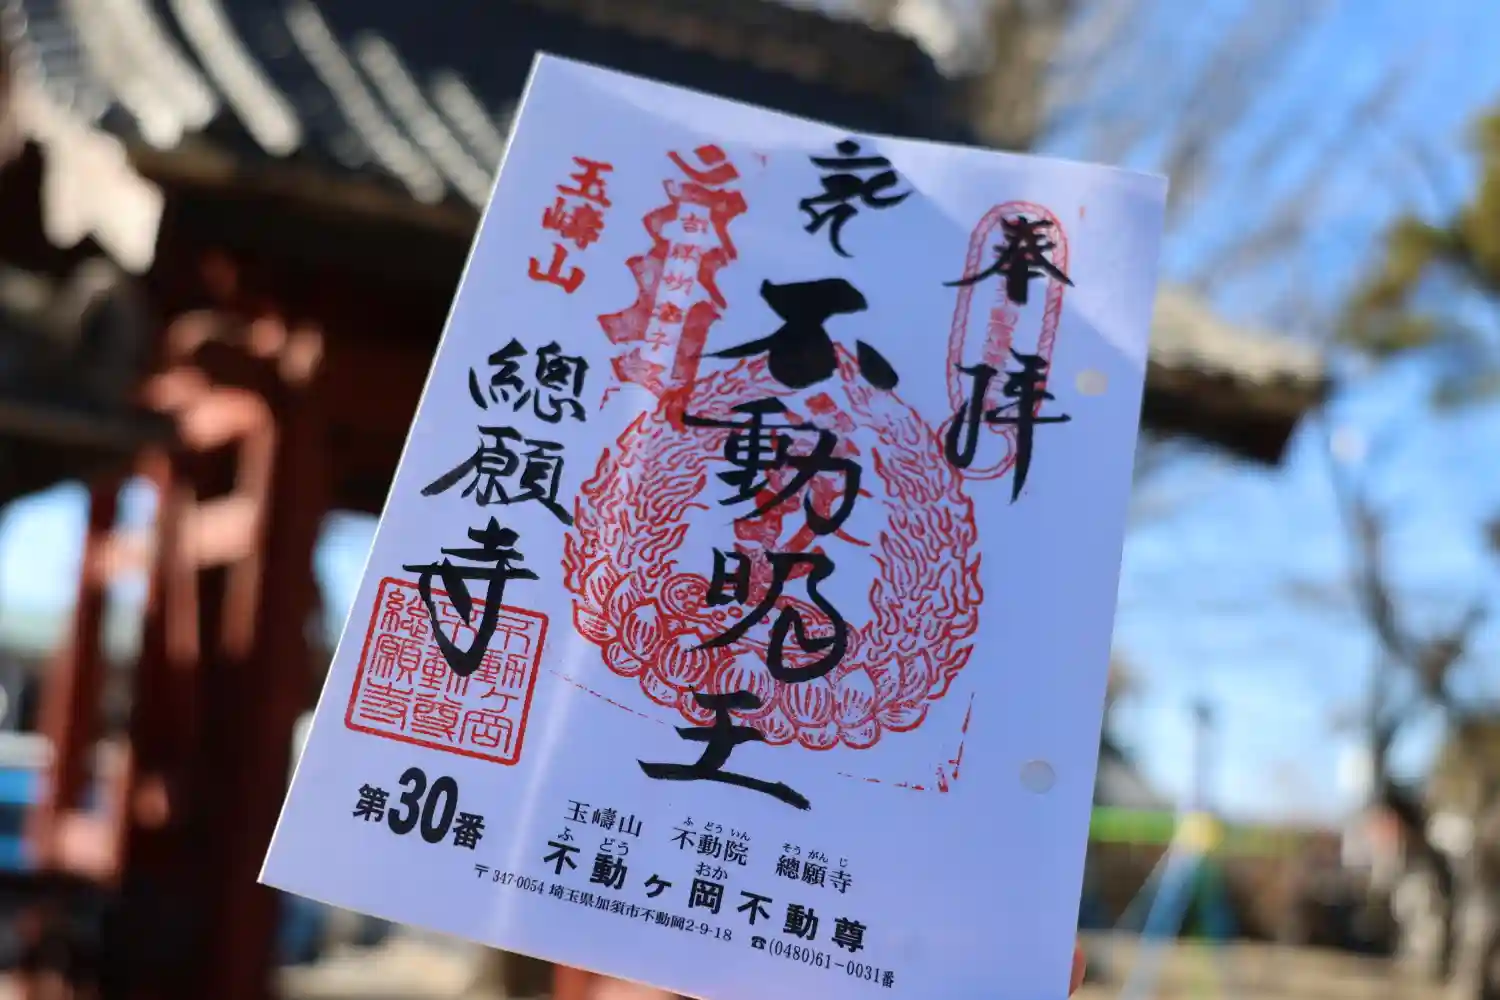 奉拝
不動明王
玉嶹山
總願寺
不動ヶ岡
不動尊
總願寺
第30番
玉嶹山 不動院 總願寺
ふどういん そうがんじ
不動ヶ岡不動尊
ふどう おか
〒347-0054 埼玉県加須市不動岡2-9-18 ☎(0480)61-0031番